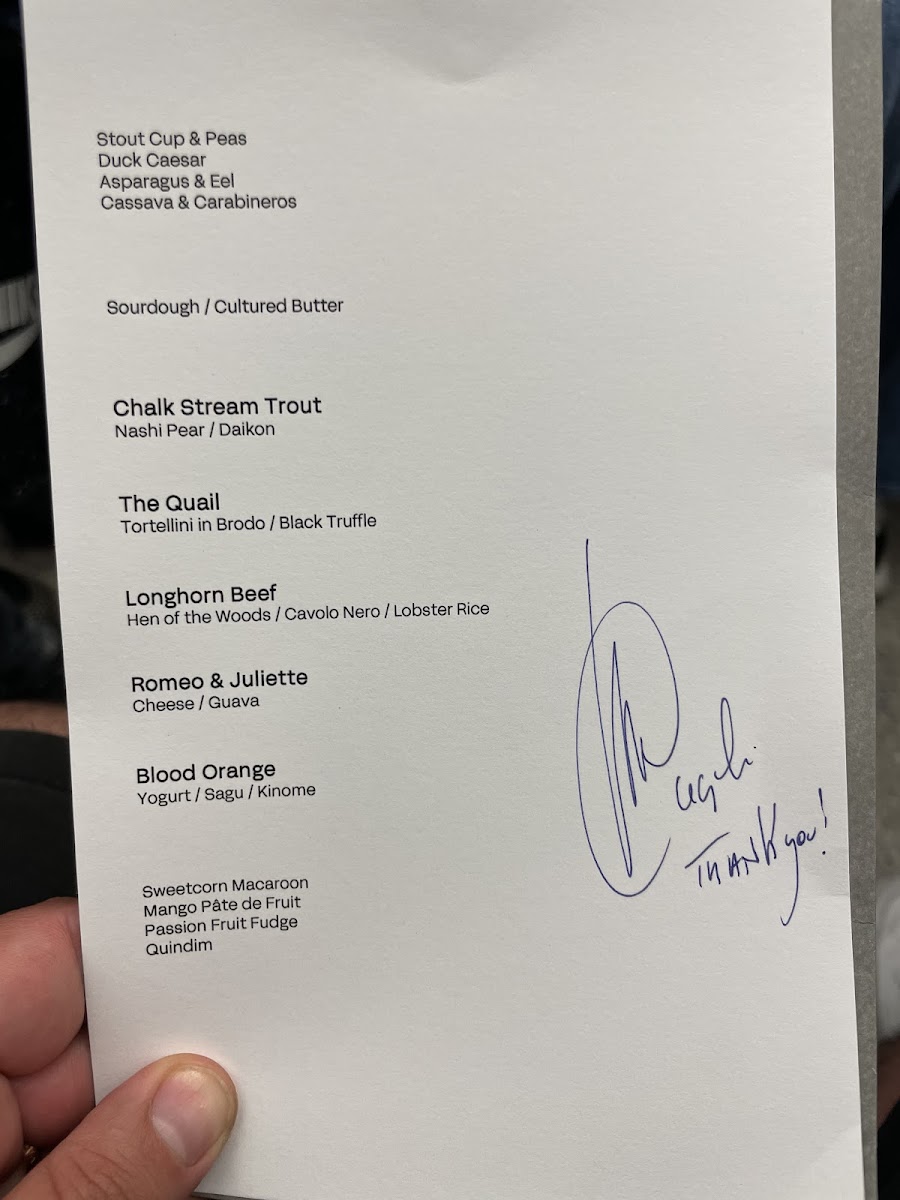 Stout Cup & Peas
Duck Caesar
Asparagus & Eel
Cassava & Carabineros
Sourdough / Cultured Butter
Chalk Stream Trout
Nashi Pear / Daikon
The Quail
Tortellini in Brodo / Black Truffle
Longhorn Beef
Hen of the Woods / Cavolo Nero / Lobster Rice
Romeo & Juliette
Cheese / Guava
Blood Orange
Yogurt / Sagu / Kinome
THANK you!
Sweetcorn Macaroon
Mango Pâte de Fruit
Passion Fruit Fudge
Quindim